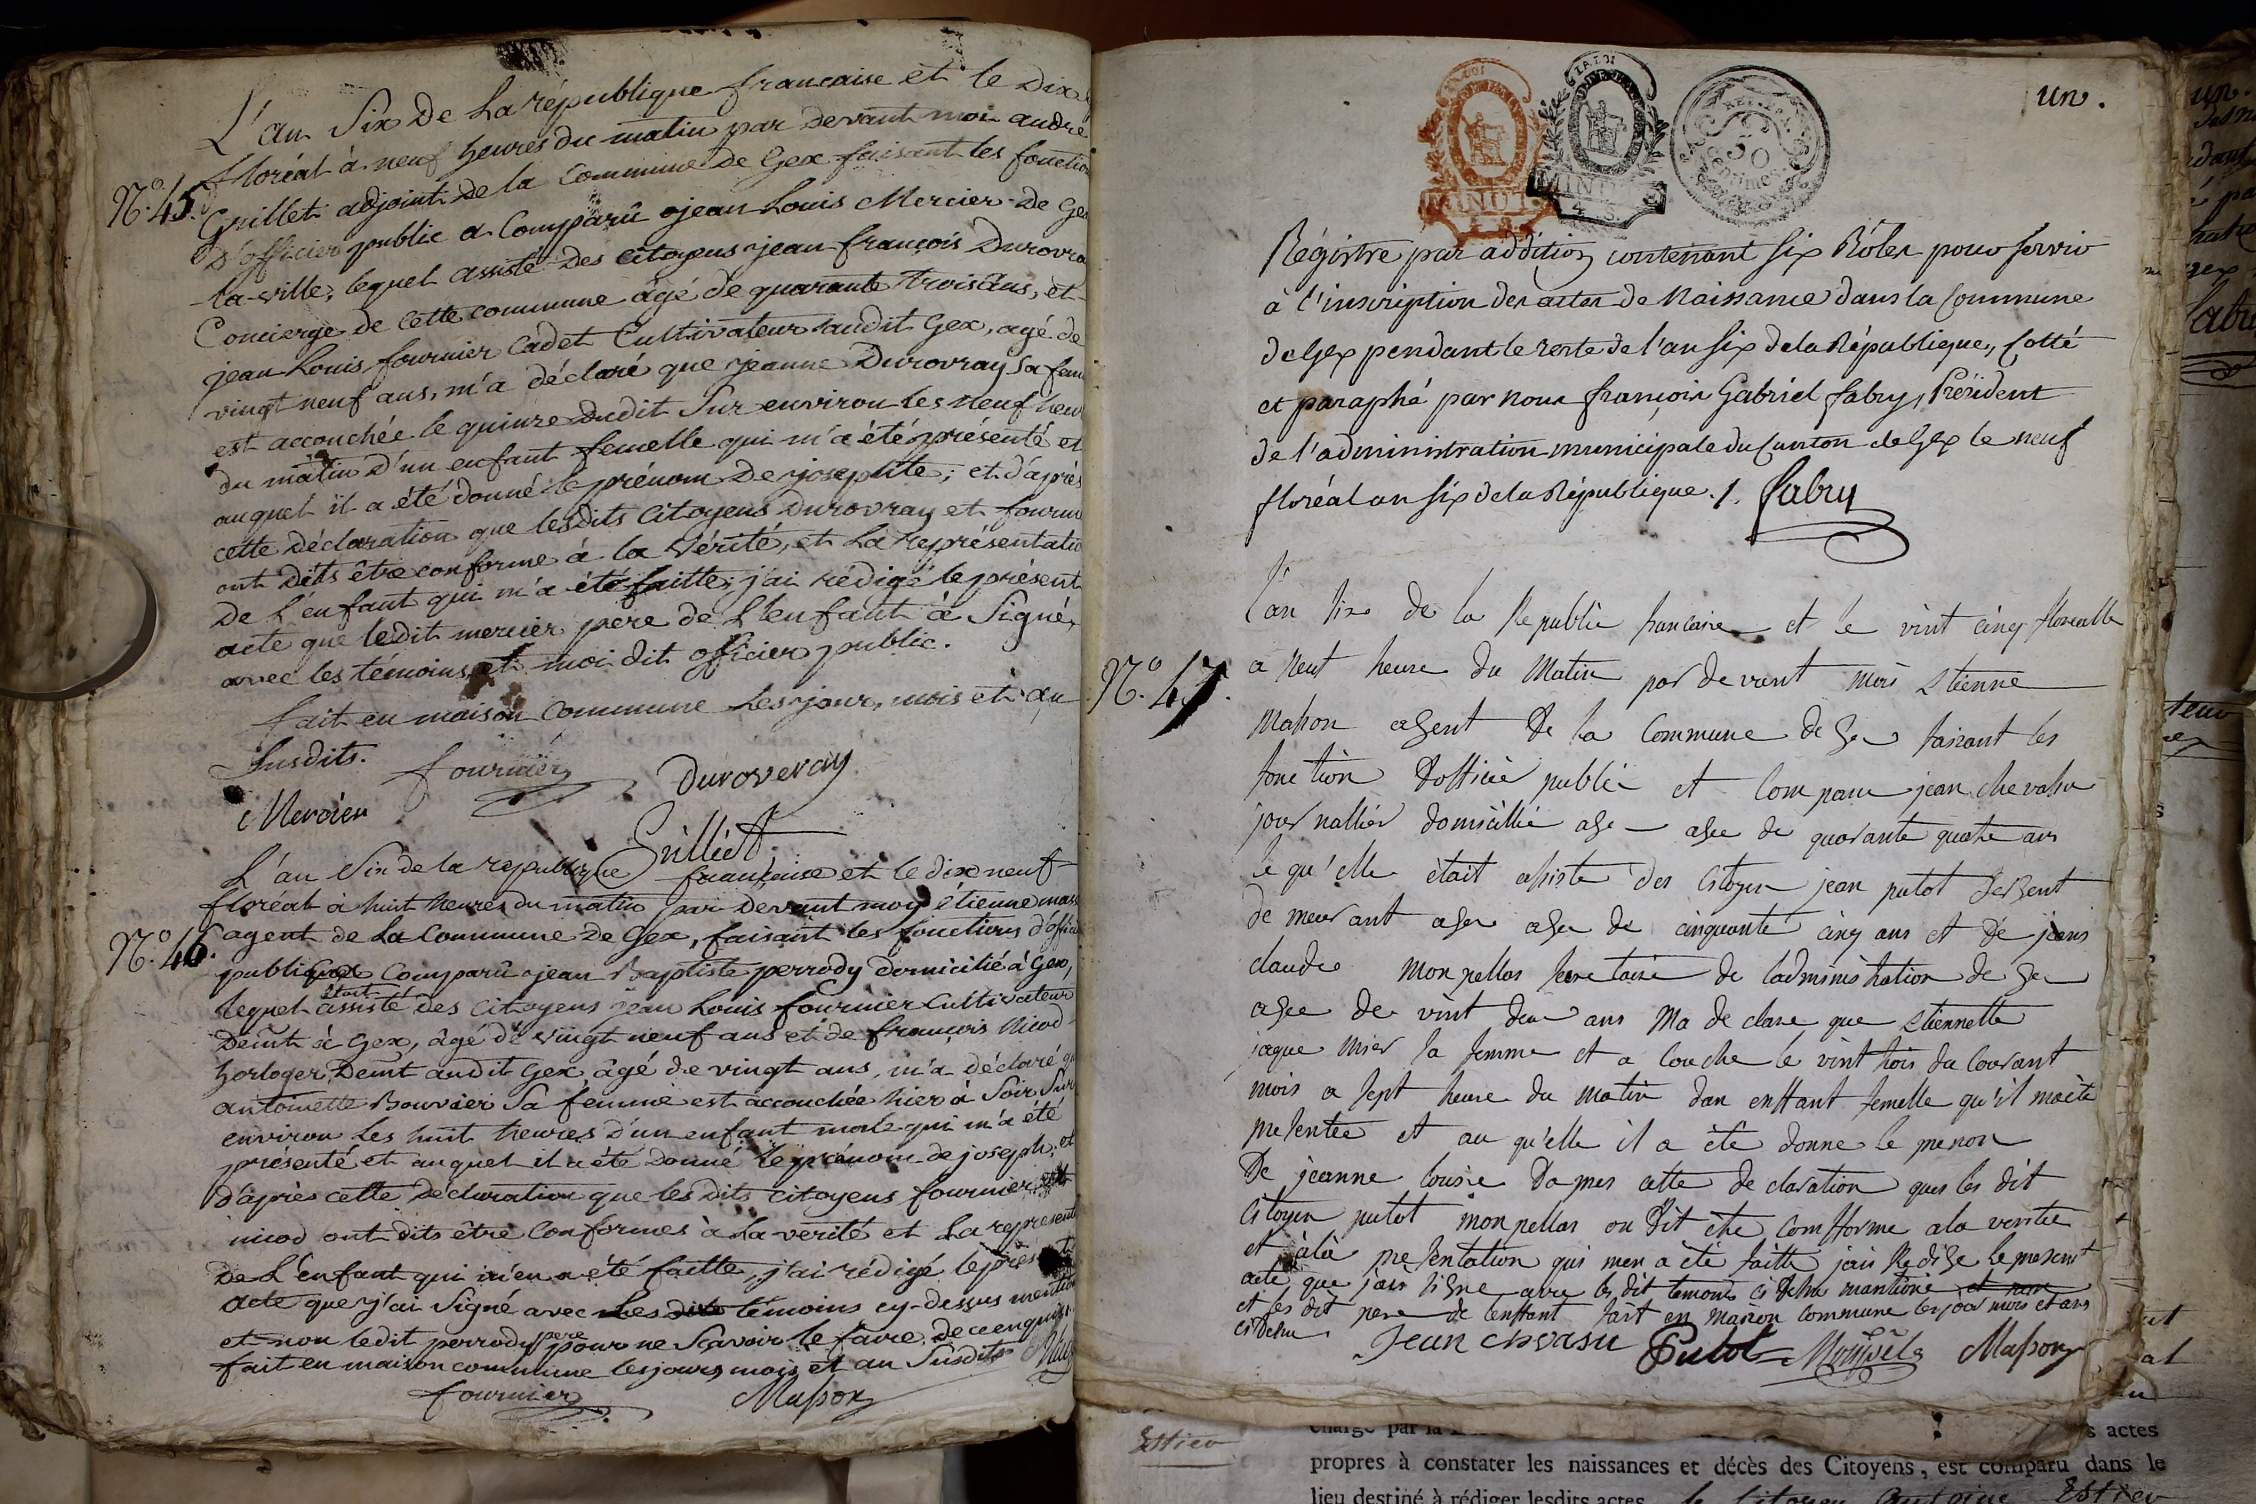 L'an Six De La république francaise et le Dix
floréal à neuf heures du matin par devant moi andré
N.º 45.
Grillet adjoint De la Commune De Gex faisant les fonction
D'officier public a Comparû jean Louis Mercier De Gex
la-ville, lequel assisté Des citoyens jean françois Durovra
Concierge de cette commune âgé de quarante trois ans, et
jean Louis fournier Cadet Cultivateur audit Gex, agé de
vingt neuf ans, m'a déclaré que jeanne Durovray Sa fem
est accouchée le quinze dudit Sur environ les neuf heu
du matin D'un enfant femelle qui m'a été présenté et
auquel il a été donné le prénom De josephte; et d'après
cette Déclaration que lesdits Citoyens Durovray et fourni
ont Dits être conforme à la Vérité, et La représentatio
De L'enfant qui m'a été faitte; j'ai rédigé le présent
acte que ledit mercier père de L'enfant a Signé,
avec les témoins et moi dit officier public.
fait en maison Commune Les jour, mois et an
Susdits.
fournier Duroveray
Mercier
Grilliet
L'an Six de la republique francaise et le dix neuf
floréal à huit heures du matin par Devant moy étienne mass
N.º 46.
agent de La Commune De Gex, faisant les fonctions d'offici
public a Comparû jean Baptiste perrody Domicilié à Gex,
lequel était assisté des citoyens jean Louis fournier Cultivateur
Demt à Gex, âgé de vingt neuf ans et de françois Nicod
horloger Demt audit Gex âgé de vingt ans, m'a déclaré qu
antoinette Bouvier Sa femme est accouchée hier à Soir Sur
environ Les huit heures d'un enfant male qui m'a été
présenté et auquel il a été Donné le prénom de joseph, et
d'après cette Déclaration que les Dits citoyens fournier et
nicod ont dits être Conformes à La verité et La represent
De L'enfant qui m'en a été faitte, j'ai rédigé le prés
acte que j'ai Signé avec Les dits témoins cy-dessus mention
et non ledit perrody pere pour ne Scavoir le faire de ce enquis.
fait en maison commune les jours mois et an Susdits
fournier Masson
un.
LA LOI LA LOI
MINUTE MINUTE
50 centimes
Régistre par addition contenant Six Rôles pour servir
à l'inscription des actes de Naissance dans la Commune
de Gex pendant le reste de l'an Six de la République, Cotté
et paraphé par nous françois Gabriel fabry, Président
de l'administration municipale du Canton de Gex le neuf
floréal an Six de la République ./. fabry
L'an Six de la Republic francaise et le vint cinq florealle
N.º 47.
a neuf heure du Matin par devant moi Etienne
Masson agent De la Commune de Gex faisant les
fonction D'officié public et Comparu jean chevassu
journallier domicillié age age de quarante quatre ans
le qu'elle était assiste des Citoyen jean putot Sergent
de meurant agee agee de cinquante cinq ans et de jeans
claude Monpellas secretaire de ladministration de Gex
agee de vint deux ans Ma de clare que Etiennette
jaque mier sa femme et a couche le vint trois du Courant
mois a sept heure du matin dan enffant femelle qu'il maété
presentée et au qu'elle il a été donne le prenon
De jeanne louise Dapres cette de claration que les dit
Citoyen putot monpellas on Dit être comfforme ala veritée
et à la presentation qui men a été faitte jais Redige le present
acte que jais signe avec les dit temoins ci desu mantione et non
et les dit pere de lenffant fait en maison commune les jour mois et ans
ci desu
Jean chevasu Putot Monpelas Masson
charge par la
s actes
propres à constater les naissances et décès des Citoyens, est comparu dans le
lieu destiné à rédiger lesdits actes, le Citoyen Antoine Estieu